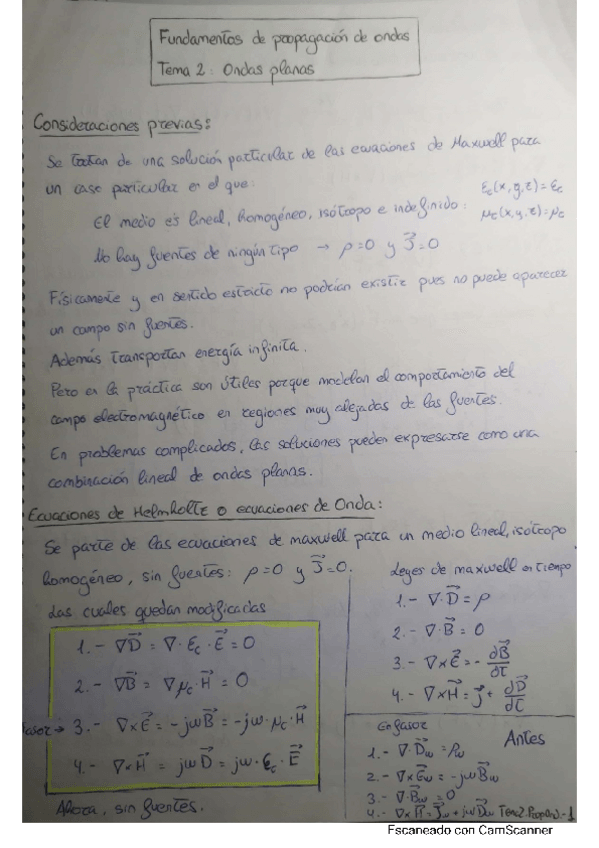 Fundamentos de propagación de ondas
Tema 2: Ondas planas
Consideraciones previas:
Se tratan de una solución particular de las ecuaciones de Maxwell para
un caso particular en el que:
El medio es lineal, homogéneo, isótropo e indefinido: ε_c(x,y,z)=ε_c
μ_c(x,y,z)=μ_c
No hay fuentes de ningún tipo → ρ=0 y J⃗=0
Físicamente y en sentido estricto no podrían existir pues no puede aparecer
un campo sin fuentes.
Además transportan energía infinita.
Pero en la práctica son útiles porque modelan el comportamiento del
campo electromagnético en regiones muy alejadas de las fuentes.
En problemas complicados, las soluciones pueden expresarse como una
combinación lineal de ondas planas.
Ecuaciones de Helmholtz o ecuaciones de Onda:
Se parte de las ecuaciones de maxwell para un medio lineal, isótropo
homogéneo, sin fuentes: ρ=0 y J⃗=0.
Las cuales quedan modificadas
1.- ∇D⃗ = ∇·ε_c·E⃗ = 0
2.- ∇B⃗ = ∇μ_c·H⃗ = 0
fasor → 3.- ∇×E⃗ = -jωB⃗ = -jω·μ_c·H⃗
4.- ∇×H⃗ = jωD⃗ = jω·ε_c·E⃗
Ahora, sin fuentes.
Leyes de maxwell en tiempo
1.- ∇·D⃗ = ρ
2.- ∇·B⃗ = 0
3.- ∇×E⃗ = -∂B⃗/∂t
4.- ∇×H⃗ = J⃗ + ∂D⃗/∂t
En fasor
Antes
1.- ∇·D⃗ω = ρω
2.- ∇×E⃗ω = -jωB⃗ω
3.- ∇·B⃗ω = 0
4.- ∇×H⃗ = J⃗ω + jωD⃗ω
Escaneado con CamScanner